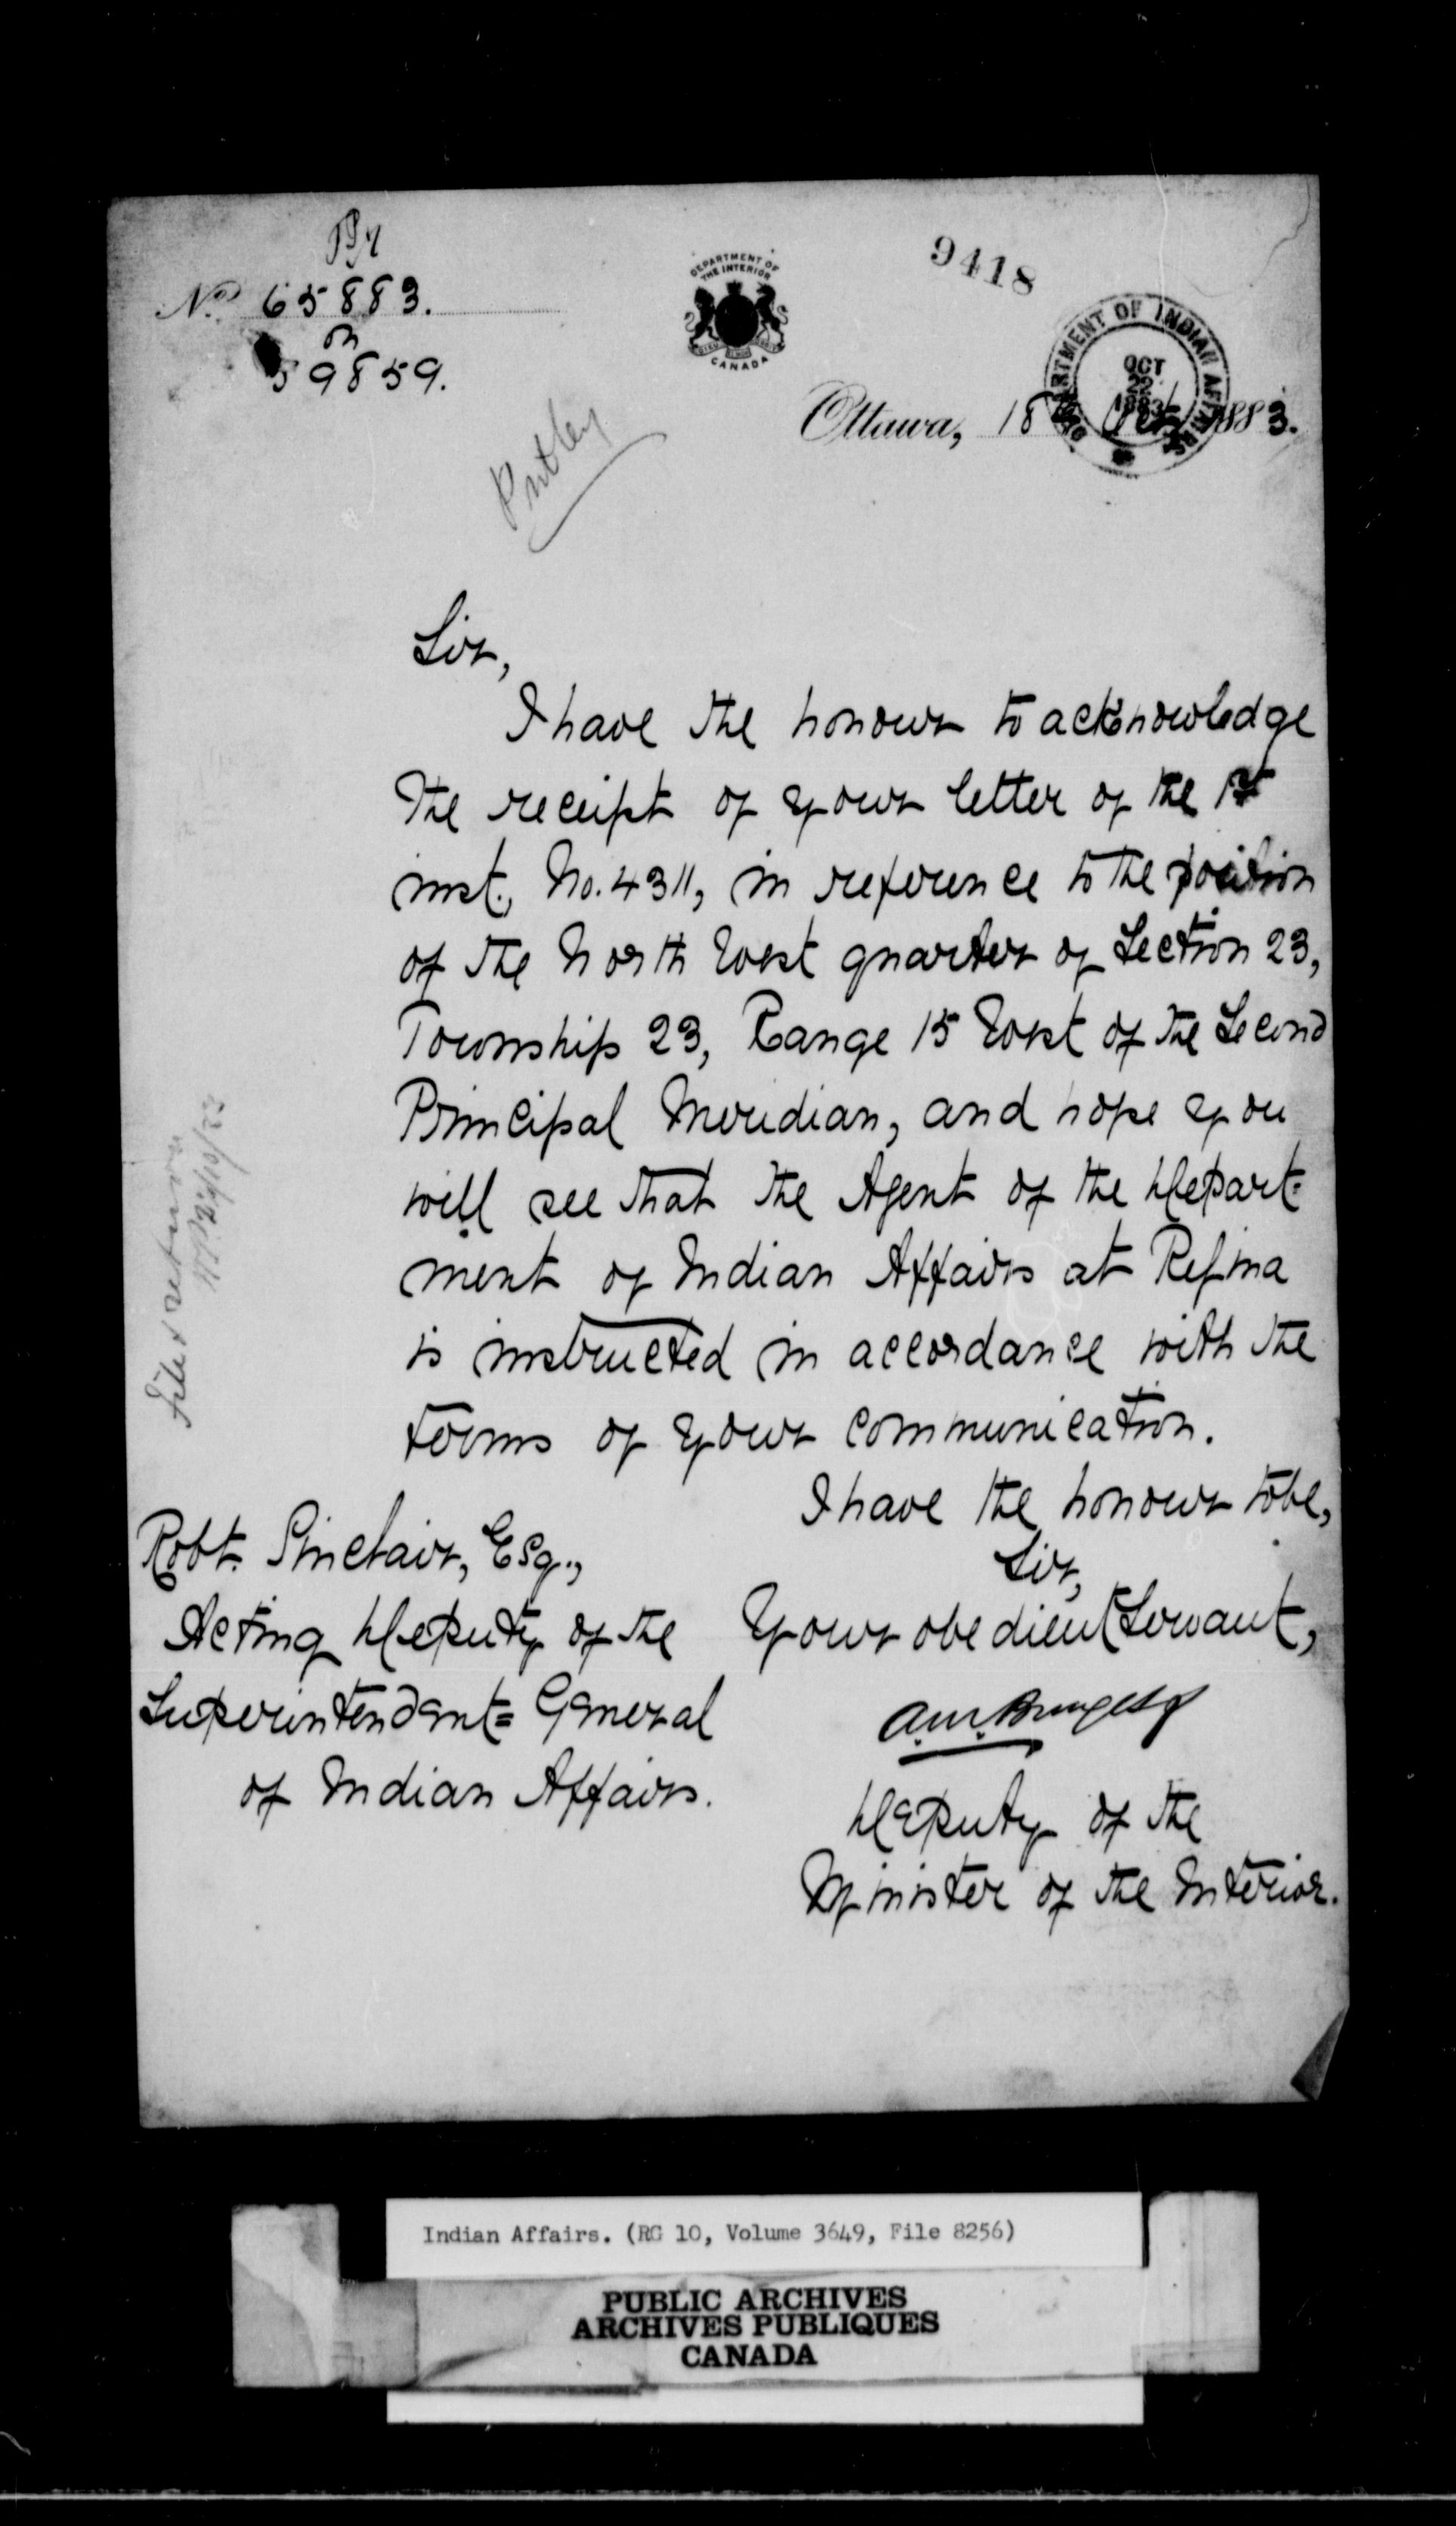 No. 65883.
on
59859.
DEPARTMENT OF
THE INTERIOR
CANADA
9418
DEPARTMENT OF INDIAN AFFAIRS
OCT
22
1883
Ottawa, 18th Oct. 1883.
Sir,
I have the honour to acknowledge
the receipt of your letter of the 1st
inst., No. 4311, in reference to the position
of the North West quarter of Section 23,
Township 23, Range 15 West of the Second
Principal Meridian, and hope you
will see that the Agent of the Depart=
ment of Indian Affairs at Regina
is instructed in accordance with the
terms of your communication.
I have the honour to be,
Sir,
Your obedient Servant,
A.M. Burgess
Deputy of the
Minister of the Interior.
Robt. Sinclair, Esq.,
Acting Deputy of the
Superintendant=General
of Indian Affairs.
File returned
Indian Affairs. (RG 10, Volume 3649, File 8256)
PUBLIC ARCHIVES
ARCHIVES PUBLIQUES
CANADA